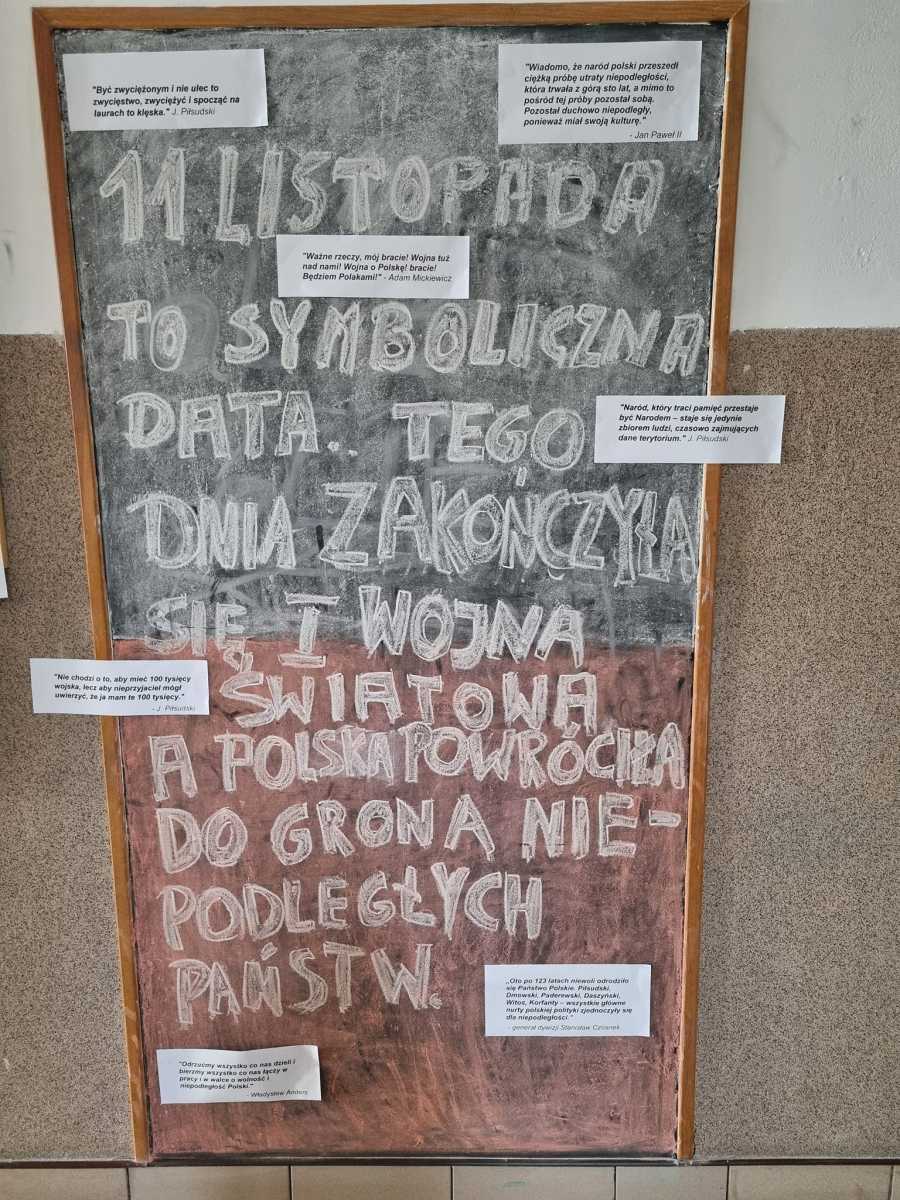 "Być zwyciężonym i nie ulec to
zwycięstwo, zwyciężyć i spocząć na
laurach to klęska." J. Piłsudski
"Wiadomo, że naród polski przeszedł
ciężką próbę utraty niepodległości,
która trwała z górą sto lat, a mimo to
pośród tej próby pozostał sobą.
Pozostał duchowo niepodległy,
ponieważ miał swoją kulturę."
- Jan Paweł II
11 LISTOPADA
"Ważne rzeczy, mój bracie! Wojna tuż
nad nami! Wojna o Polskę! bracie!
Będziem Polakami!" - Adam Mickiewicz
TO SYMBOLICZNA
DATA. TEGO
"Naród, który traci pamięć przestaje
być Narodem – staje się jedynie
zbiorem ludzi, czasowo zajmujących
dane terytorium." J. Piłsudski
DNIA ZAKOŃCZYŁA
SIĘ I WOJNA
ŚWIATOWA
"Nie chodzi o to, aby mieć 100 tysięcy
wojska, lecz aby nieprzyjaciel mógł
uwierzyć, że ja mam te 100 tysięcy."
- J. Piłsudski
A POLSKA POWRÓCIŁA
DO GRONA NIE-
PODLEGŁYCH
PAŃSTW.
„Oto po 123 latach niewoli odrodziło
się Państwo Polskie. Piłsudski,
Dmowski, Paderewski, Daszyński,
Witos, Korfanty – wszystkie główne
nurty polskiej polityki zjednoczyły się
dla niepodległości."
- generał dywizji Stanisław Czosnek
"Odrzućmy wszystko co nas dzieli i
bierzmy wszystko co nas łączy w
pracy i w walce o wolność i
niepodległość Polski."
- Władysław Anders